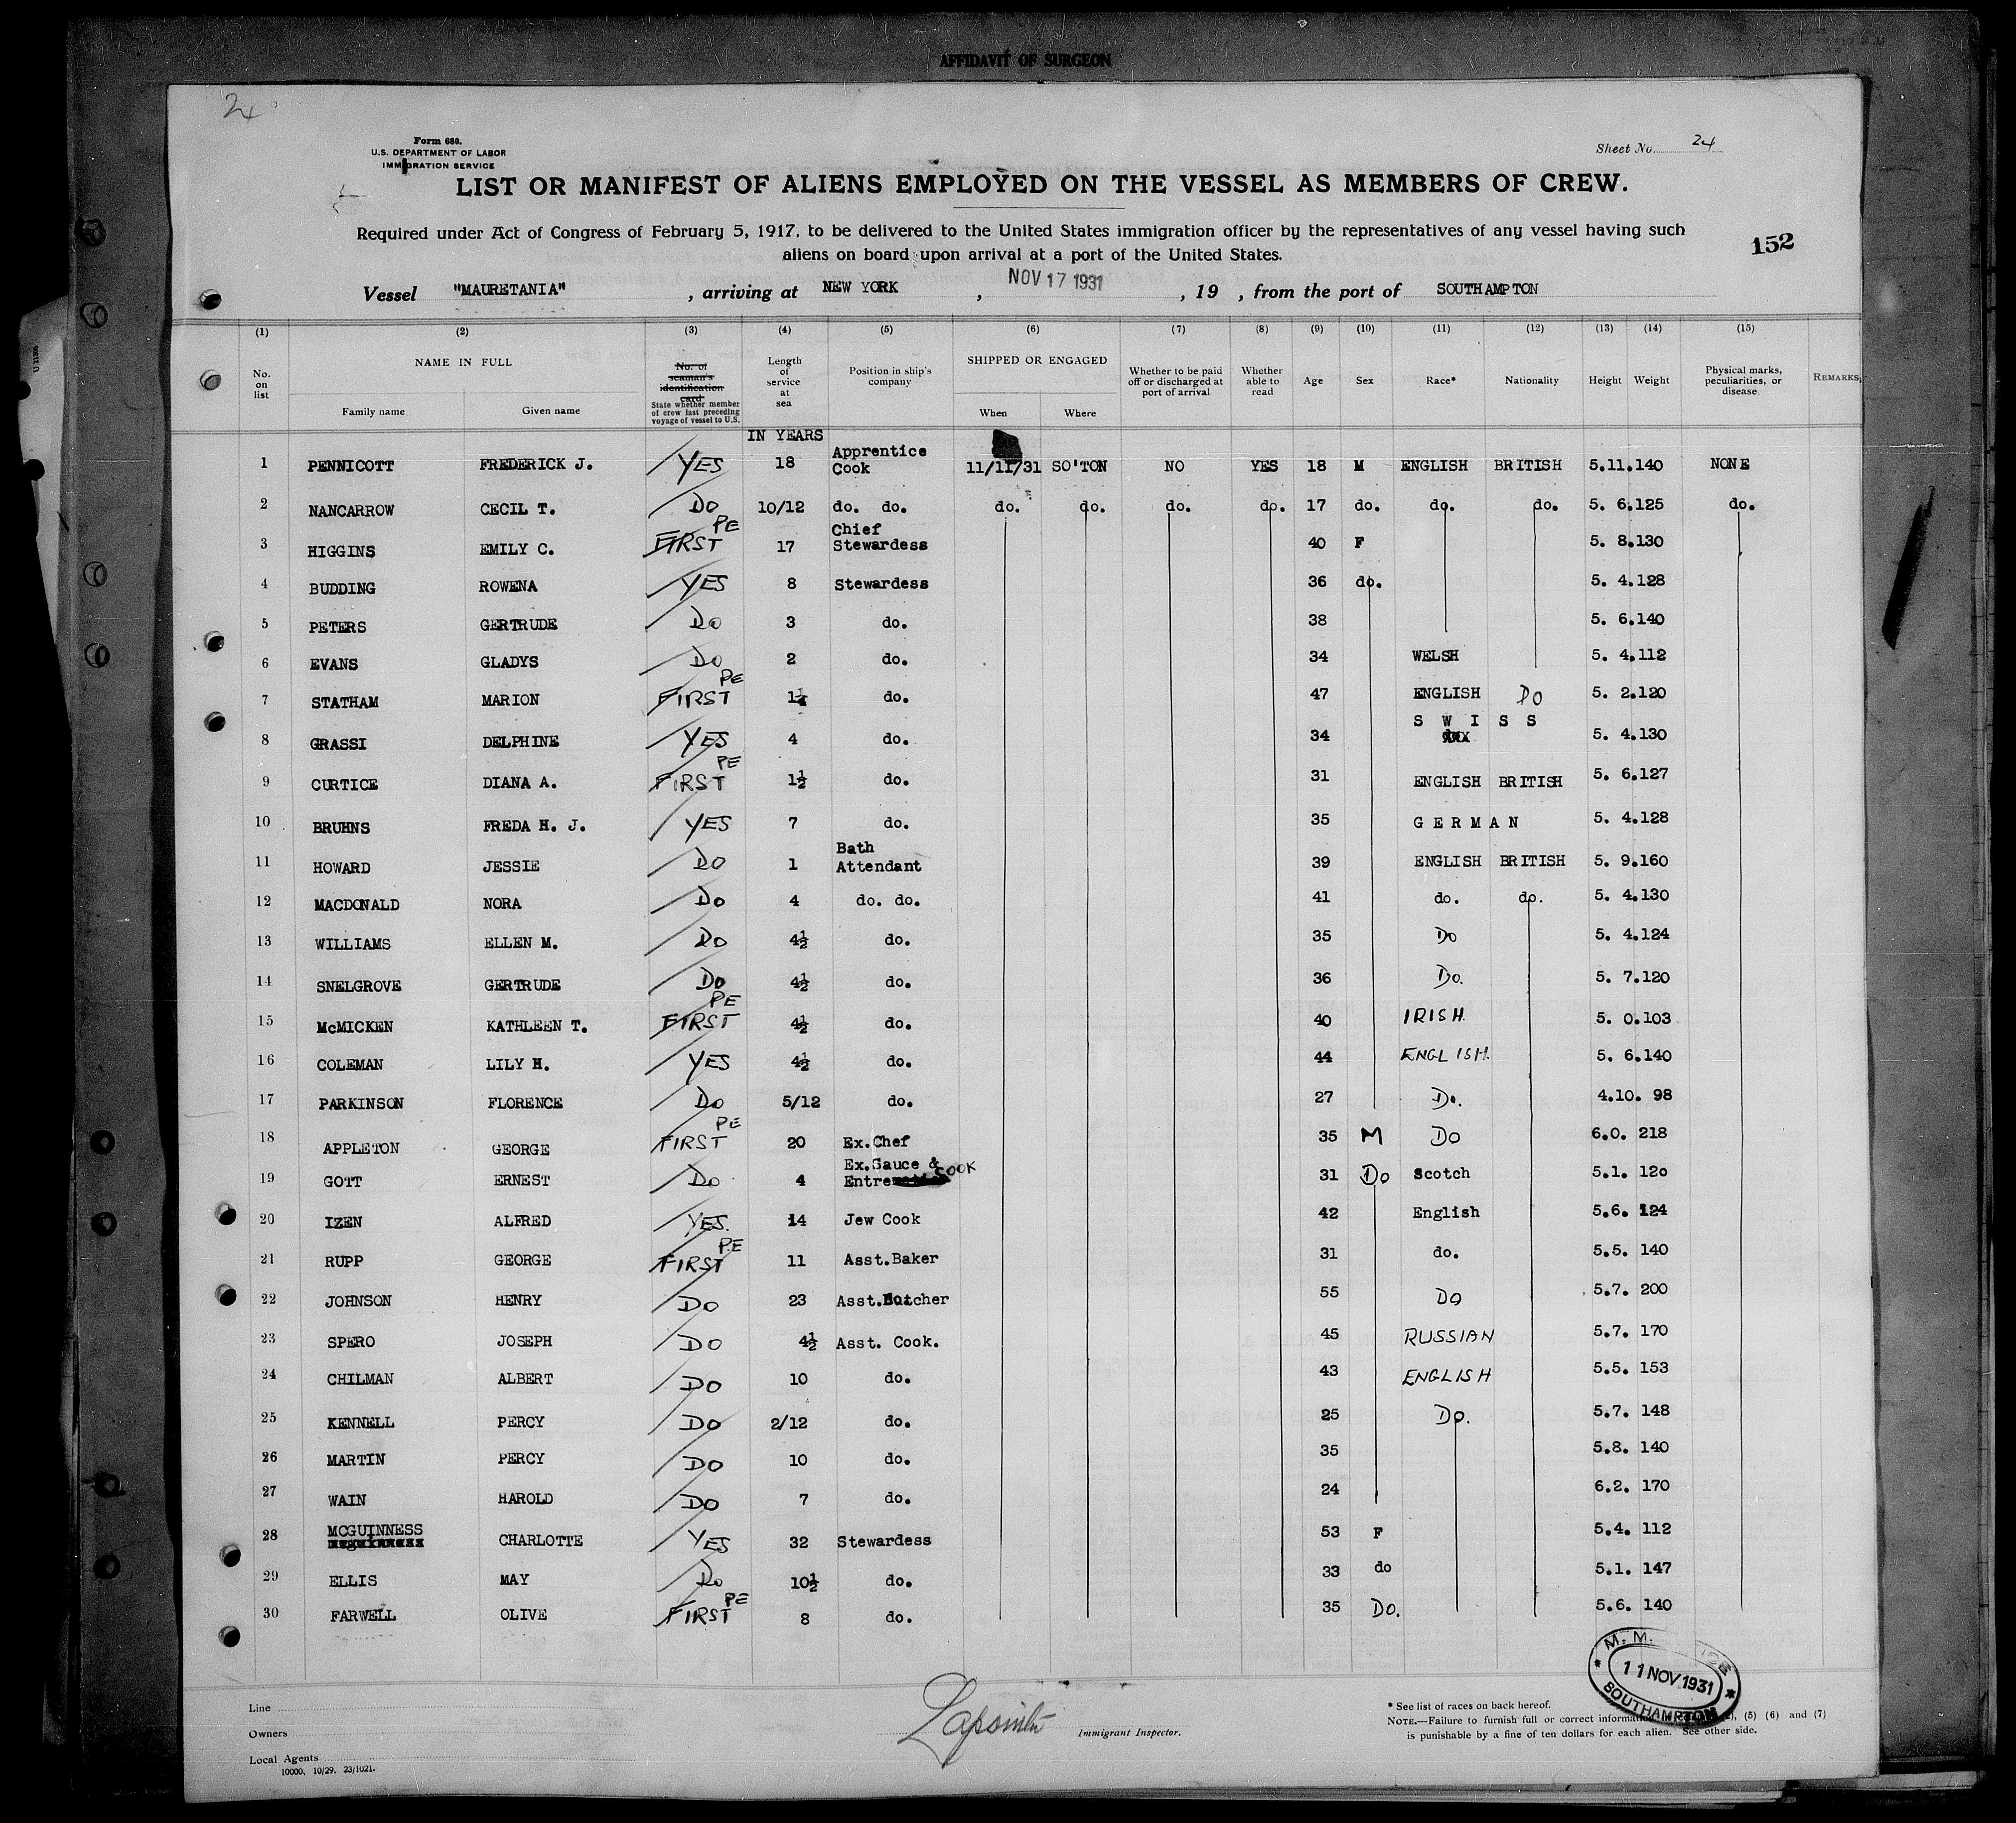 AFFIDAVIT OF SURGEON
24
Form 680.
U.S. DEPARTMENT OF LABOR
IMMIGRATION SERVICE
Sheet No. 24
LIST OR MANIFEST OF ALIENS EMPLOYED ON THE VESSEL AS MEMBERS OF CREW.
Required under Act of Congress of February 5, 1917, to be delivered to the United States immigration officer by the representatives of any vessel having such
aliens on board upon arrival at a port of the United States.
152
Vessel "MAURETANIA", arriving at NEW YORK, NOV 17 1931, 19 , from the port of SOUTHAMPTON
(1) (2) (3) (4) (5) (6) (7) (8) (9) (10) (11) (12) (13) (14) (15)
No. on list NAME IN FULL Family name Given name No. of seaman's identification card State whether member of crew last preceding voyage of vessel to U.S. Length of service at sea Position in ship's company SHIPPED OR ENGAGED When Where Whether to be paid off or discharged at port of arrival Whether able to read Age Sex Race* Nationality Height Weight Physical marks, peculiarities, or disease REMARKS,
IN YEARS
1 PENNICOTT FREDERICK J. YES 18 Apprentice Cook 11/11/31 SO'TON NO YES 18 M ENGLISH BRITISH 5.11. 140 NONE
2 NANCARROW CECIL T. DO 10/12 do. do. do. do. do. do. 17 do. do. do. 5. 6. 125 do.
3 HIGGINS EMILY C. FIRST PE 17 Chief Stewardess 40 F 5. 8. 130
4 BUDDING ROWENA YES 8 Stewardess 36 do. 5. 4. 128
5 PETERS GERTRUDE DO 3 do. 38 5. 6. 140
6 EVANS GLADYS DO 2 do. 34 WELSH 5. 4. 112
7 STATHAM MARION FIRST PE 1¼ do. 47 ENGLISH DO 5. 2. 120
8 GRASSI DELPHINE YES 4 do. 34 S W I S S 5. 4. 130
9 CURTICE DIANA A. FIRST PE 1½ do. 31 ENGLISH BRITISH 5. 6. 127
10 BRUHNS FREDA H. J. YES 7 do. 35 G E R M A N 5. 4. 128
11 HOWARD JESSIE DO 1 Bath Attendant 39 ENGLISH BRITISH 5. 9. 160
12 MACDONALD NORA DO 4 do. do. 41 do. do. 5. 4. 130
13 WILLIAMS ELLEN M. DO 4½ do. 35 DO 5. 4. 124
14 SNELGROVE GERTRUDE DO 4½ do. 36 DO. 5. 7. 120
15 McMICKEN KATHLEEN T. FIRST PE 4½ do. 40 IRISH. 5. 0. 103
16 COLEMAN LILY H. YES 4½ do. 44 ENGLISH. 5. 6. 140
17 PARKINSON FLORENCE DO 5/12 do. 27 Do. 4.10. 98
18 APPLETON GEORGE FIRST PE 20 Ex.Chef 35 M DO 6.0. 218
19 GOTT ERNEST DO 4 Ex.Sauce & Entre COOK 31 Do Scotch 5.1. 120
20 IZEN ALFRED YES. 14 Jew Cook 42 English 5.6. 124
21 RUPP GEORGE FIRST P.E 11 Asst.Baker 31 do. 5.5. 140
22 JOHNSON HENRY DO 23 Asst.Butcher 55 DO 5.7. 200
23 SPERO JOSEPH DO 4½ Asst. Cook. 45 RUSSIAN 5.7. 170
24 CHILMAN ALBERT DO 10 do. 43 ENGLISH 5.5. 153
25 KENNELL PERCY DO 2/12 do. 25 DO. 5.7. 148
26 MARTIN PERCY DO 10 do. 35 5.8. 140
27 WAIN HAROLD DO 7 do. 24 6.2. 170
28 MCGUINNESS CHARLOTTE YES 32 Stewardess 53 F 5.4. 112
29 ELLIS MAY DO 10½ do. 33 do 5.1. 147
30 FARWELL OLIVE FIRST PE 8 do. 35 DO. 5.6. 140
M. M. 11 NOV 1931 SOUTHAMPTON
Line
Owners
Local Agents
10000, 10/29. 23/1021.
Immigrant Inspector.
* See list of races on back hereof.
NOTE.—Failure to furnish full or correct (5) (6) and (7)
is punishable by a fine of ten dollars for each alien. See other side.